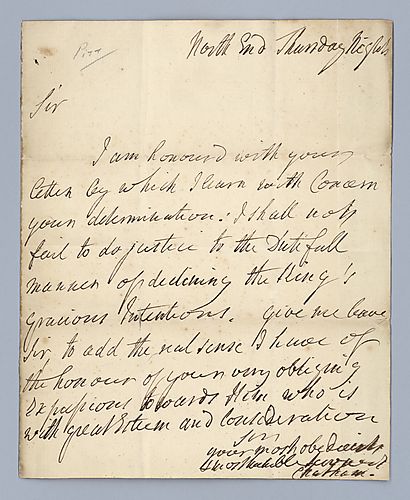 Pitt
North End Thursday Night
Sir
I am honour'd with your
letter by which I learn with Concern
your determination: I shall not
fail to do justice to the Dutifull
manner of declining the King's
gracious Intentions. give me leave
Sir, to add the real sense I have of
the honour of your very obliging
Expressions towards Him who is
with great Esteem and Consideration
Sir
your most obedient
& most humble servant
Chatham.